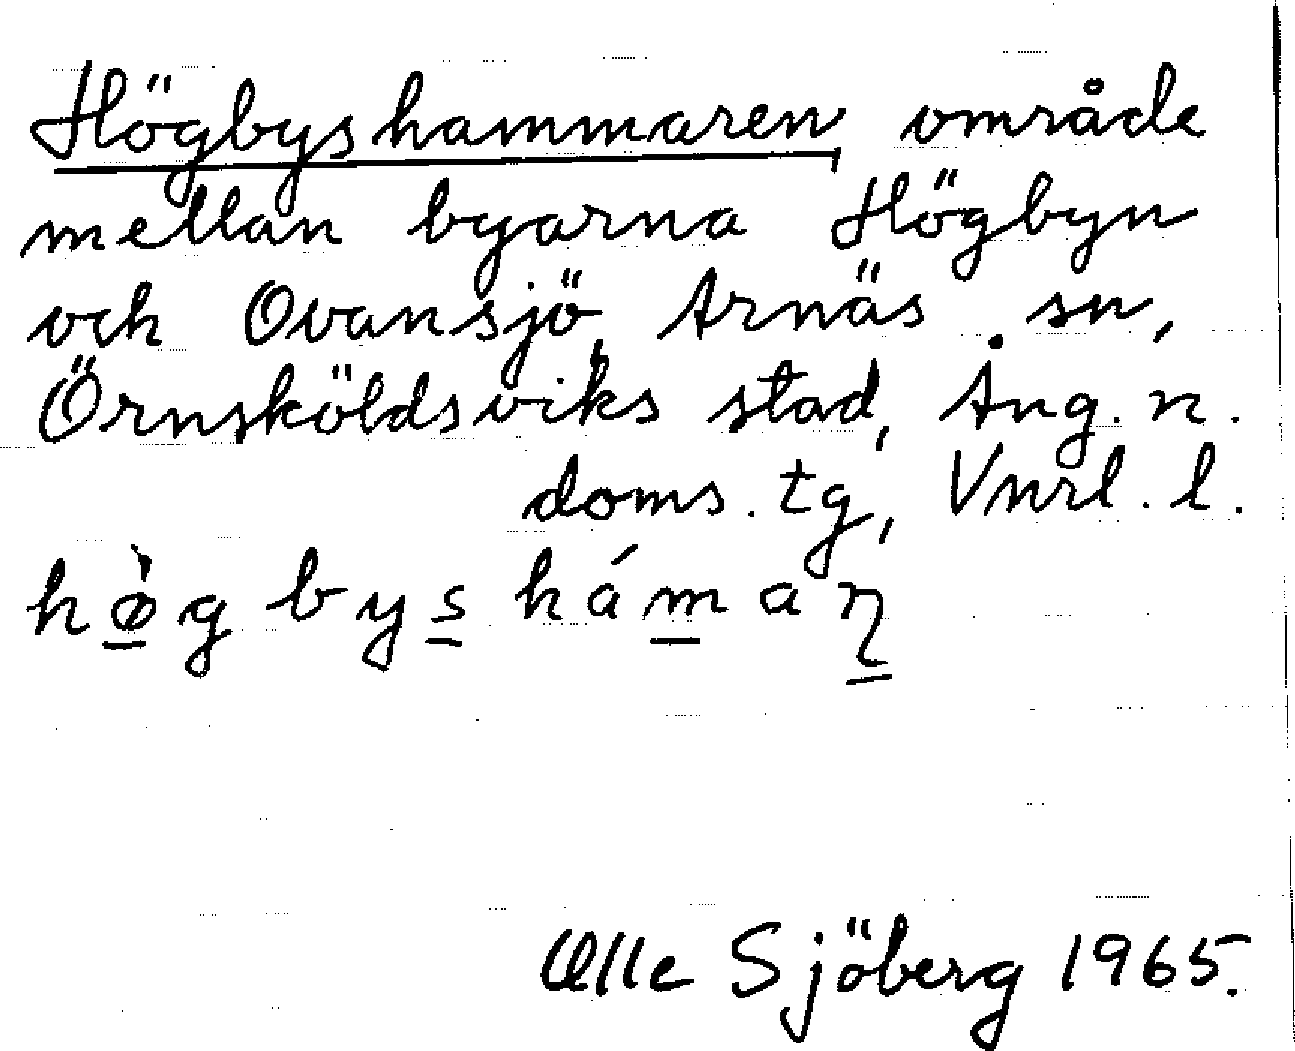 Högbyshammaren, område
mellan byarna Högbyn
och Ovansjö, Arnäs sn,
Örnsköldsviks stad, Ång. n.
doms. tg, Vnrl. l.
hø̀gbyshámaṇ
Olle Sjöberg 1965.